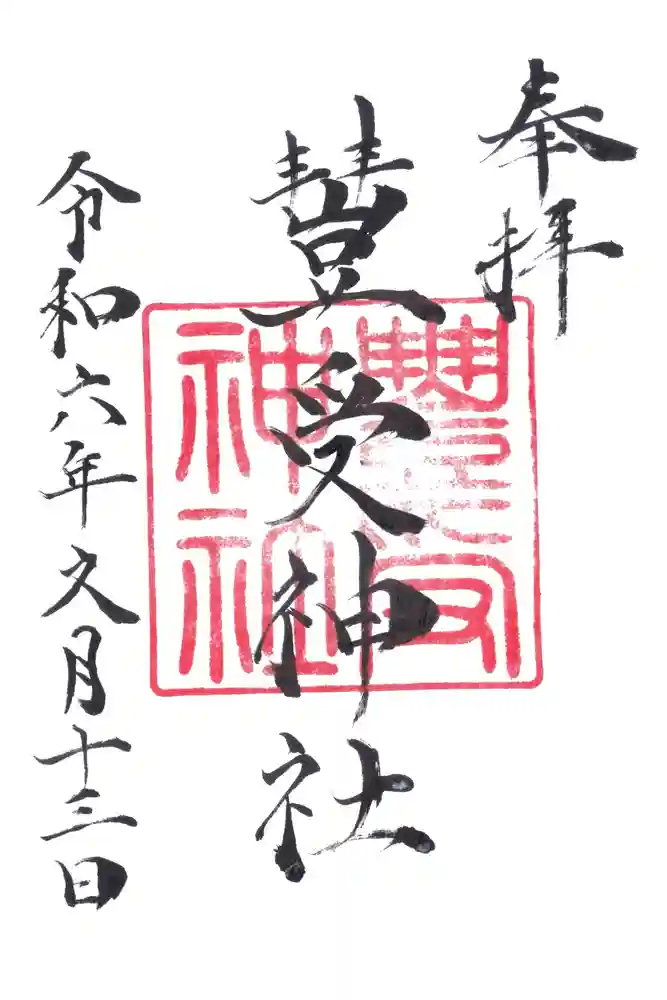 奉拝
豐受神社
令和六年文月十三日
豐受
神社